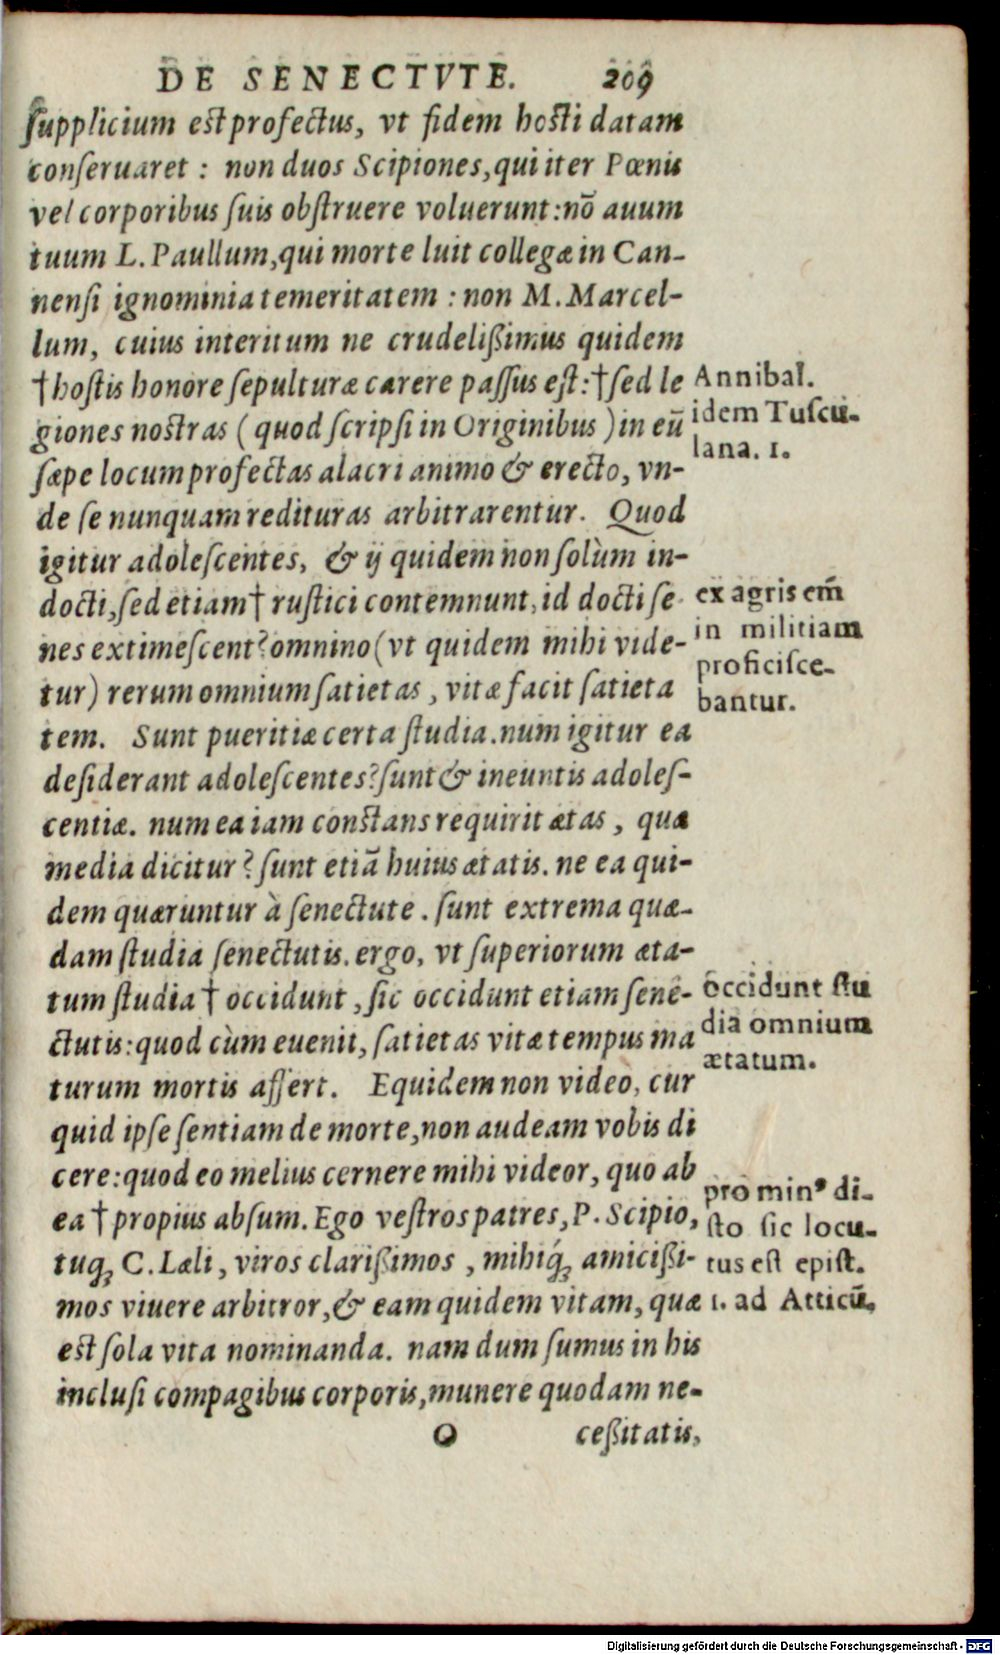 DE SENECTVTE. 209
ſupplicium eſt profectus, vt fidem hoſti datam
conſeruaret : non duos Scipiones, qui iter Pœnis
vel corporibus ſuis obſtruere voluerunt: nō auum
tuum L. Paullum, qui morte luit collegæ in Can-
nenſi ignominia temeritatem : non M. Marcel-
lum, cuius interitum ne crudelißimus quidem
† hoſtis honore ſepulturæ carere paſſus eſt: † ſed le
giones noſtras ( quod ſcripſi in Originibus ) in eū
ſæpe locum profectas alacri animo & erecto, vn-
de ſe nunquam redituras arbitrarentur. Quod
igitur adoleſcentes, & ij quidem non ſolùm in-
docti, ſed etiam † ruſtici contemnunt, id docti ſe-
nes extimeſcent? omnino (vt quidem mihi vide-
tur) rerum omnium ſatietas, vitæ facit ſatieta
tem. Sunt pueritiæ certa ſtudia. num igitur ea
deſiderant adoleſcentes? ſunt & ineuntis adoleſ-
centiæ. num ea iam conſtans requirit ætas, quæ
media dicitur? ſunt etiā huius ætatis. ne ea qui-
dem quæruntur à ſenectute. ſunt extrema quæ-
dam ſtudia ſenectutis. ergo, vt ſuperiorum æta-
tum ſtudia † occidunt, ſic occidunt etiam ſene-
ctutis: quod cùm euenit, ſatietas vitæ tempus ma
turum mortis affert. Equidem non video, cur
quid ipſe ſentiam de morte, non audeam vobis di
cere: quod eo melius cernere mihi videor, quo ab
ea † propius abſum. Ego veſtros patres, P. Scipio,
tuq́ꝫ C. Læli, viros clarißimos, mihiq́ꝫ amicißi-
mos viuere arbitror, & eam quidem vitam, quæ
eſt ſola vita nominanda. nam dum ſumus in his
incluſi compagibus corporis, munere quodam ne-
O ceßitatis,
Annibal.
idem Tuſcu-
lana. 1.
ex agris em̄
in militiam
proficiſce-
bantur.
occidunt ſtu
dia omnium
ætatum.
pro minꝰ di-
ſto ſic locu-
tus eſt epiſt.
1. ad Atticū.
Digitalisierung gefördert durch die Deutsche Forschungsgemeinschaft - DFG